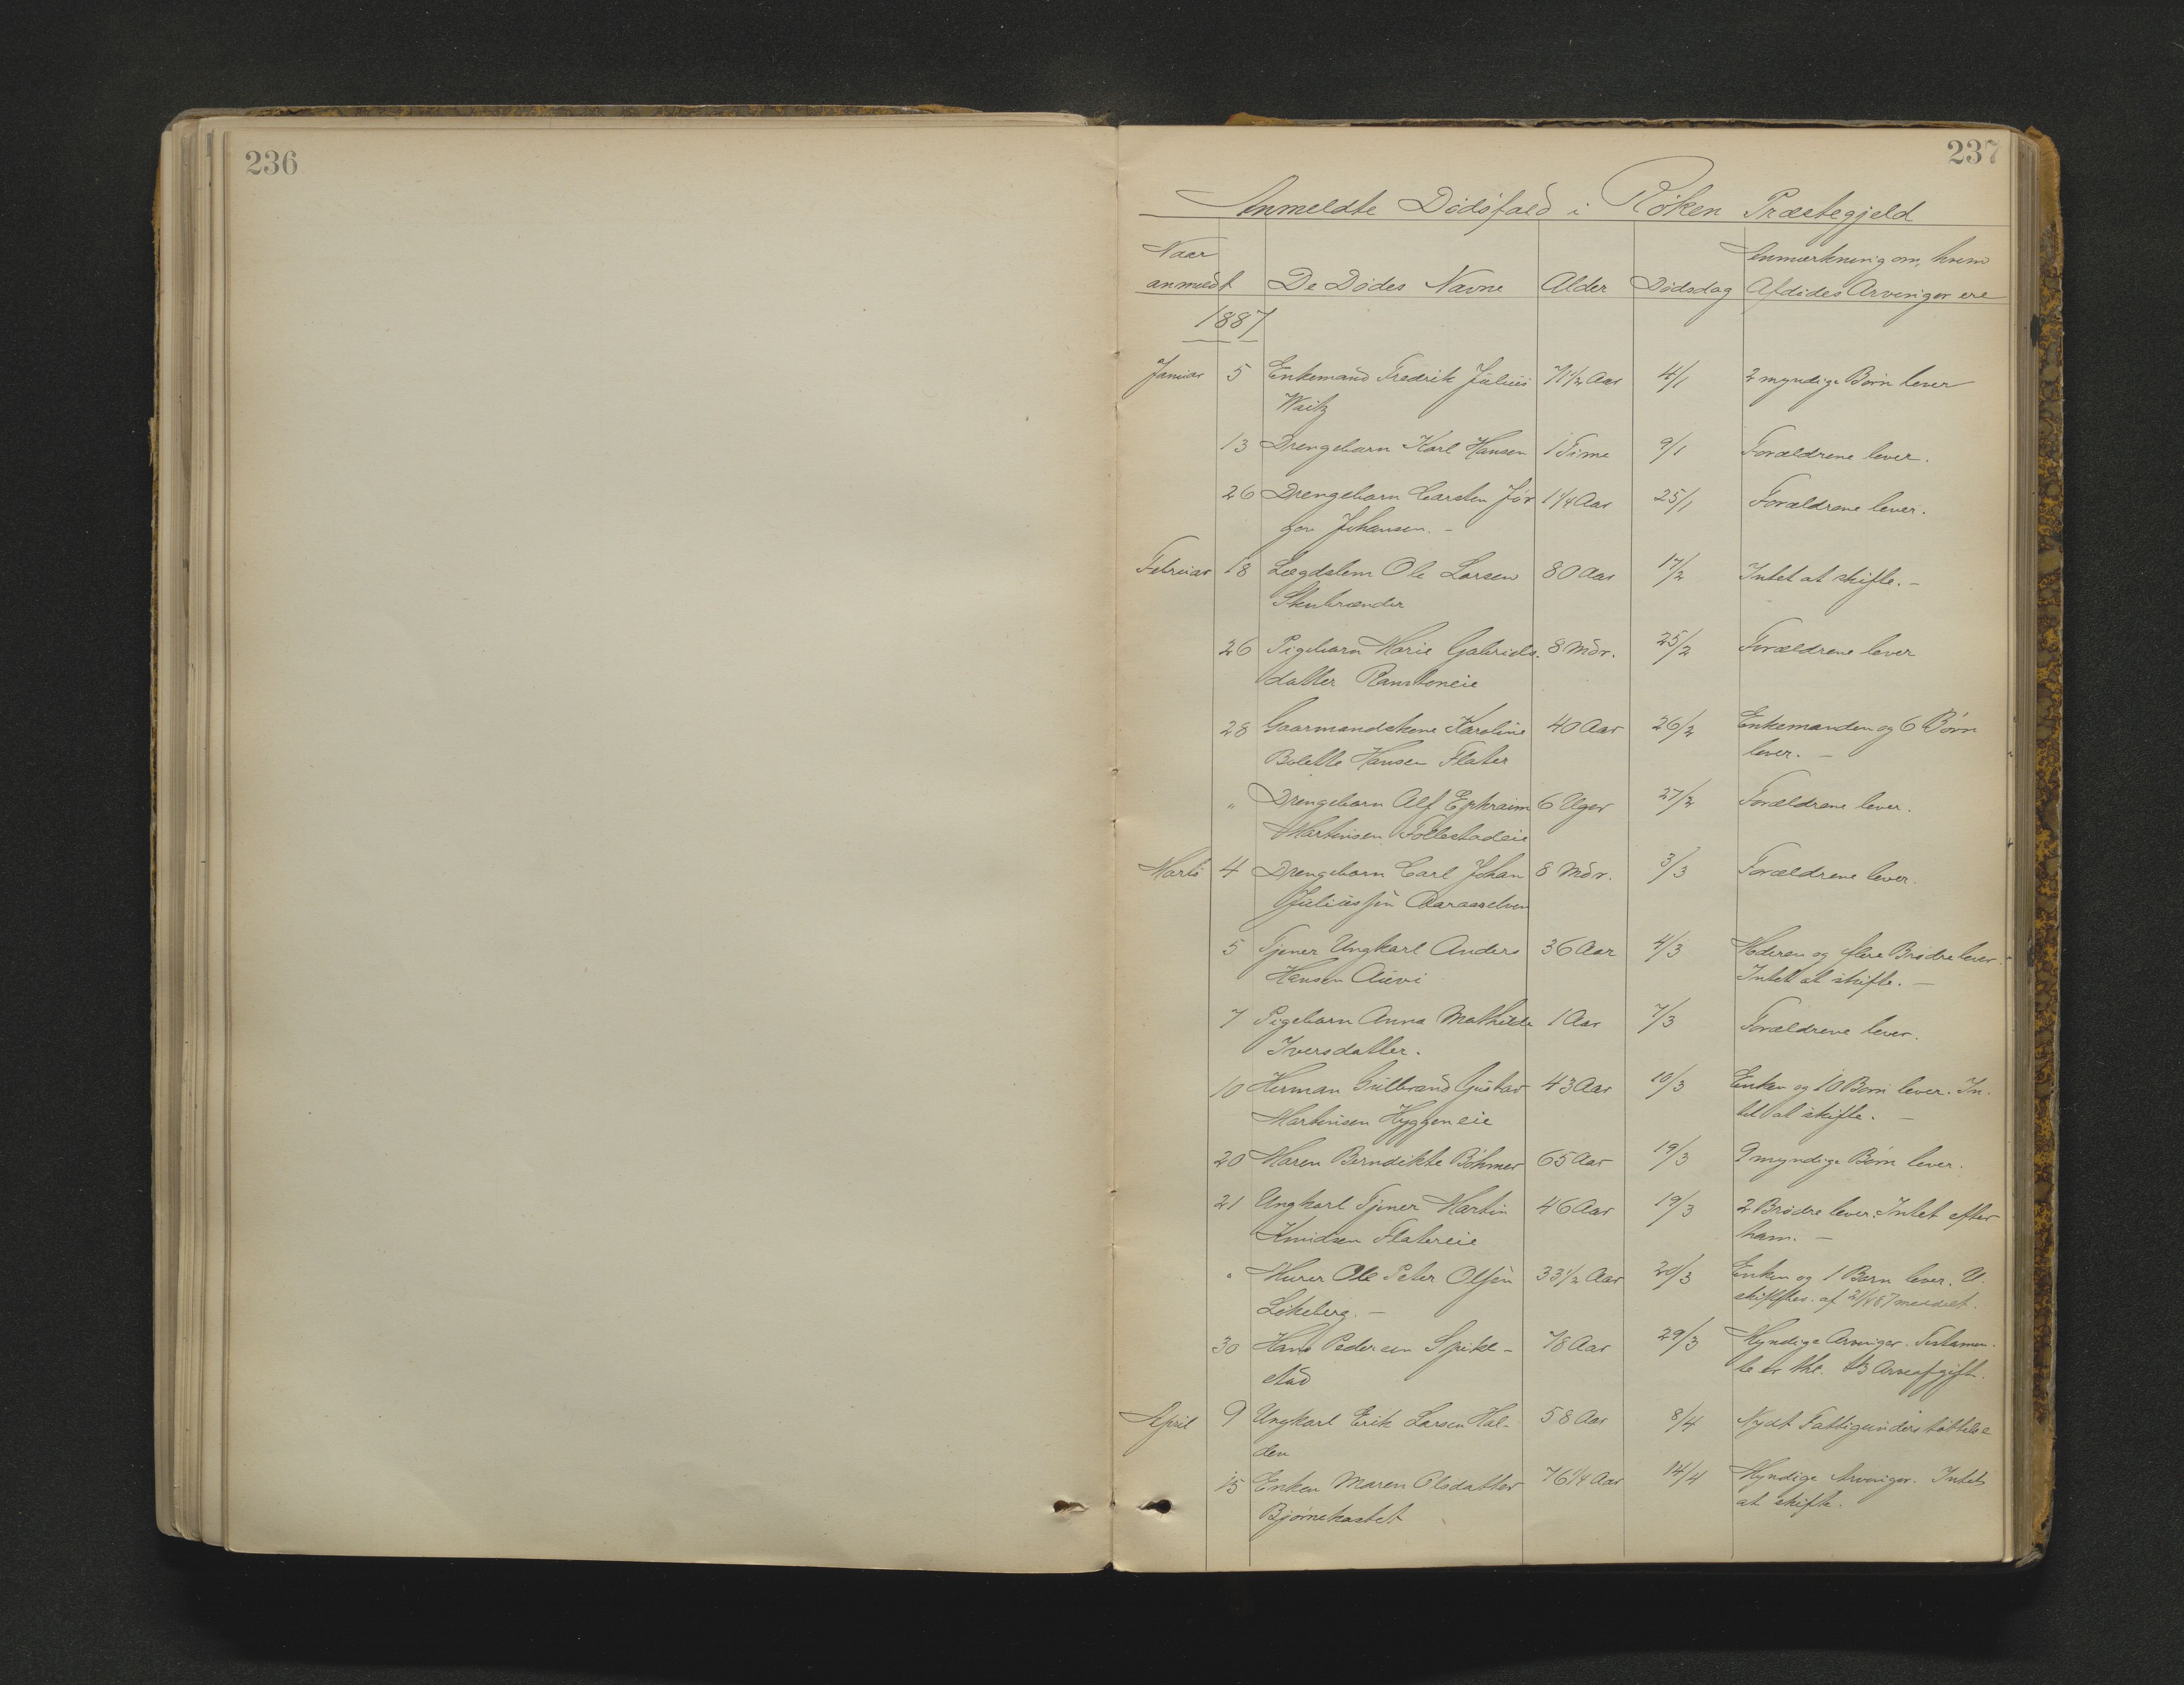 236
237
Anmeldte Dödsfald i Röken Præstegjeld
Naar Anmærkning om, hvem
anmeldt De Dödes Navne Alder Dödsdag Afdödes Arvinger ere
1887
Januar 5 Enkemand Fredrik Julius 71 1/2 Aar 4/1 2 myndige Börn lever
Waitz
13 Drengebarn Karl Hansen 1 Time 9/1 Forældrene lever.
26 Drengebarn Carsten Jör 1 1/4 Aar 25/1 Forældrene lever.
gen Johansen. -
Februar 18 Lægdslem Ole Larsen 80 Aar 17/2 Intet at skifte. -
Stubrænder
26 Pigebarn Marie Gabriels- 8 Mdr. 25/2 Forældrene lever
datter Ramtoneie
28 Gaarmandskone Karoline 40 Aar 26/2 Enkemanden og 6 Börn
Bolette Hansen Flater lever. -
" Drengebarn Alf Ephraim 6 Uger 27/2 Forældrene lever.
Martinsen Follestadeie
Marts 4 Drengebarn Carl Johan 8 Mdr. 3/3 Forældrene lever.
Juliussen Aaraaselven
5 Tjener Ungkarl Anders 36 Aar 4/3 Moderen og flere Brödre lever
Hansen Auvi Intet at skifte. -
7 Pigebarn Anna Mathilde 1 Aar 7/3 Forældrene lever.
Iversdatter.
10 Herman Gulbrand Gustav 43 Aar 10/3 Enken og 10 Börn lever. In-
Martinsen Hyggeneie tet at skifte. -
20 Maren Berndikte Böhmer 65 Aar 19/3 9 myndige Börn lever.
21 Ungkarl Tjener Martin 46 Aar 19/3 2 Brödre lever. Intet efter
Knudsen Flatereie ham. -
" Murer Ole Peter Olsen 33 1/2 Aar 20/3 Enken og 1 Barn lever. U.
Lökeberg. - skiftes. af 2/4 87 meddelt.
30 Hans Pedersen Spikke- 78 Aar 29/3 Myndige Arvinger. Testamen-
stad te er thl. Arveafgift.
April 9 Ungkarl Erik Larsen Hal- 58 Aar 8/4 Nydt Fattigunderstöttelse
den
15 Enken Maren Olsdatter 76 1/4 Aar 14/4 Myndige Arvinger. Intet
Björnekastet at skifte.